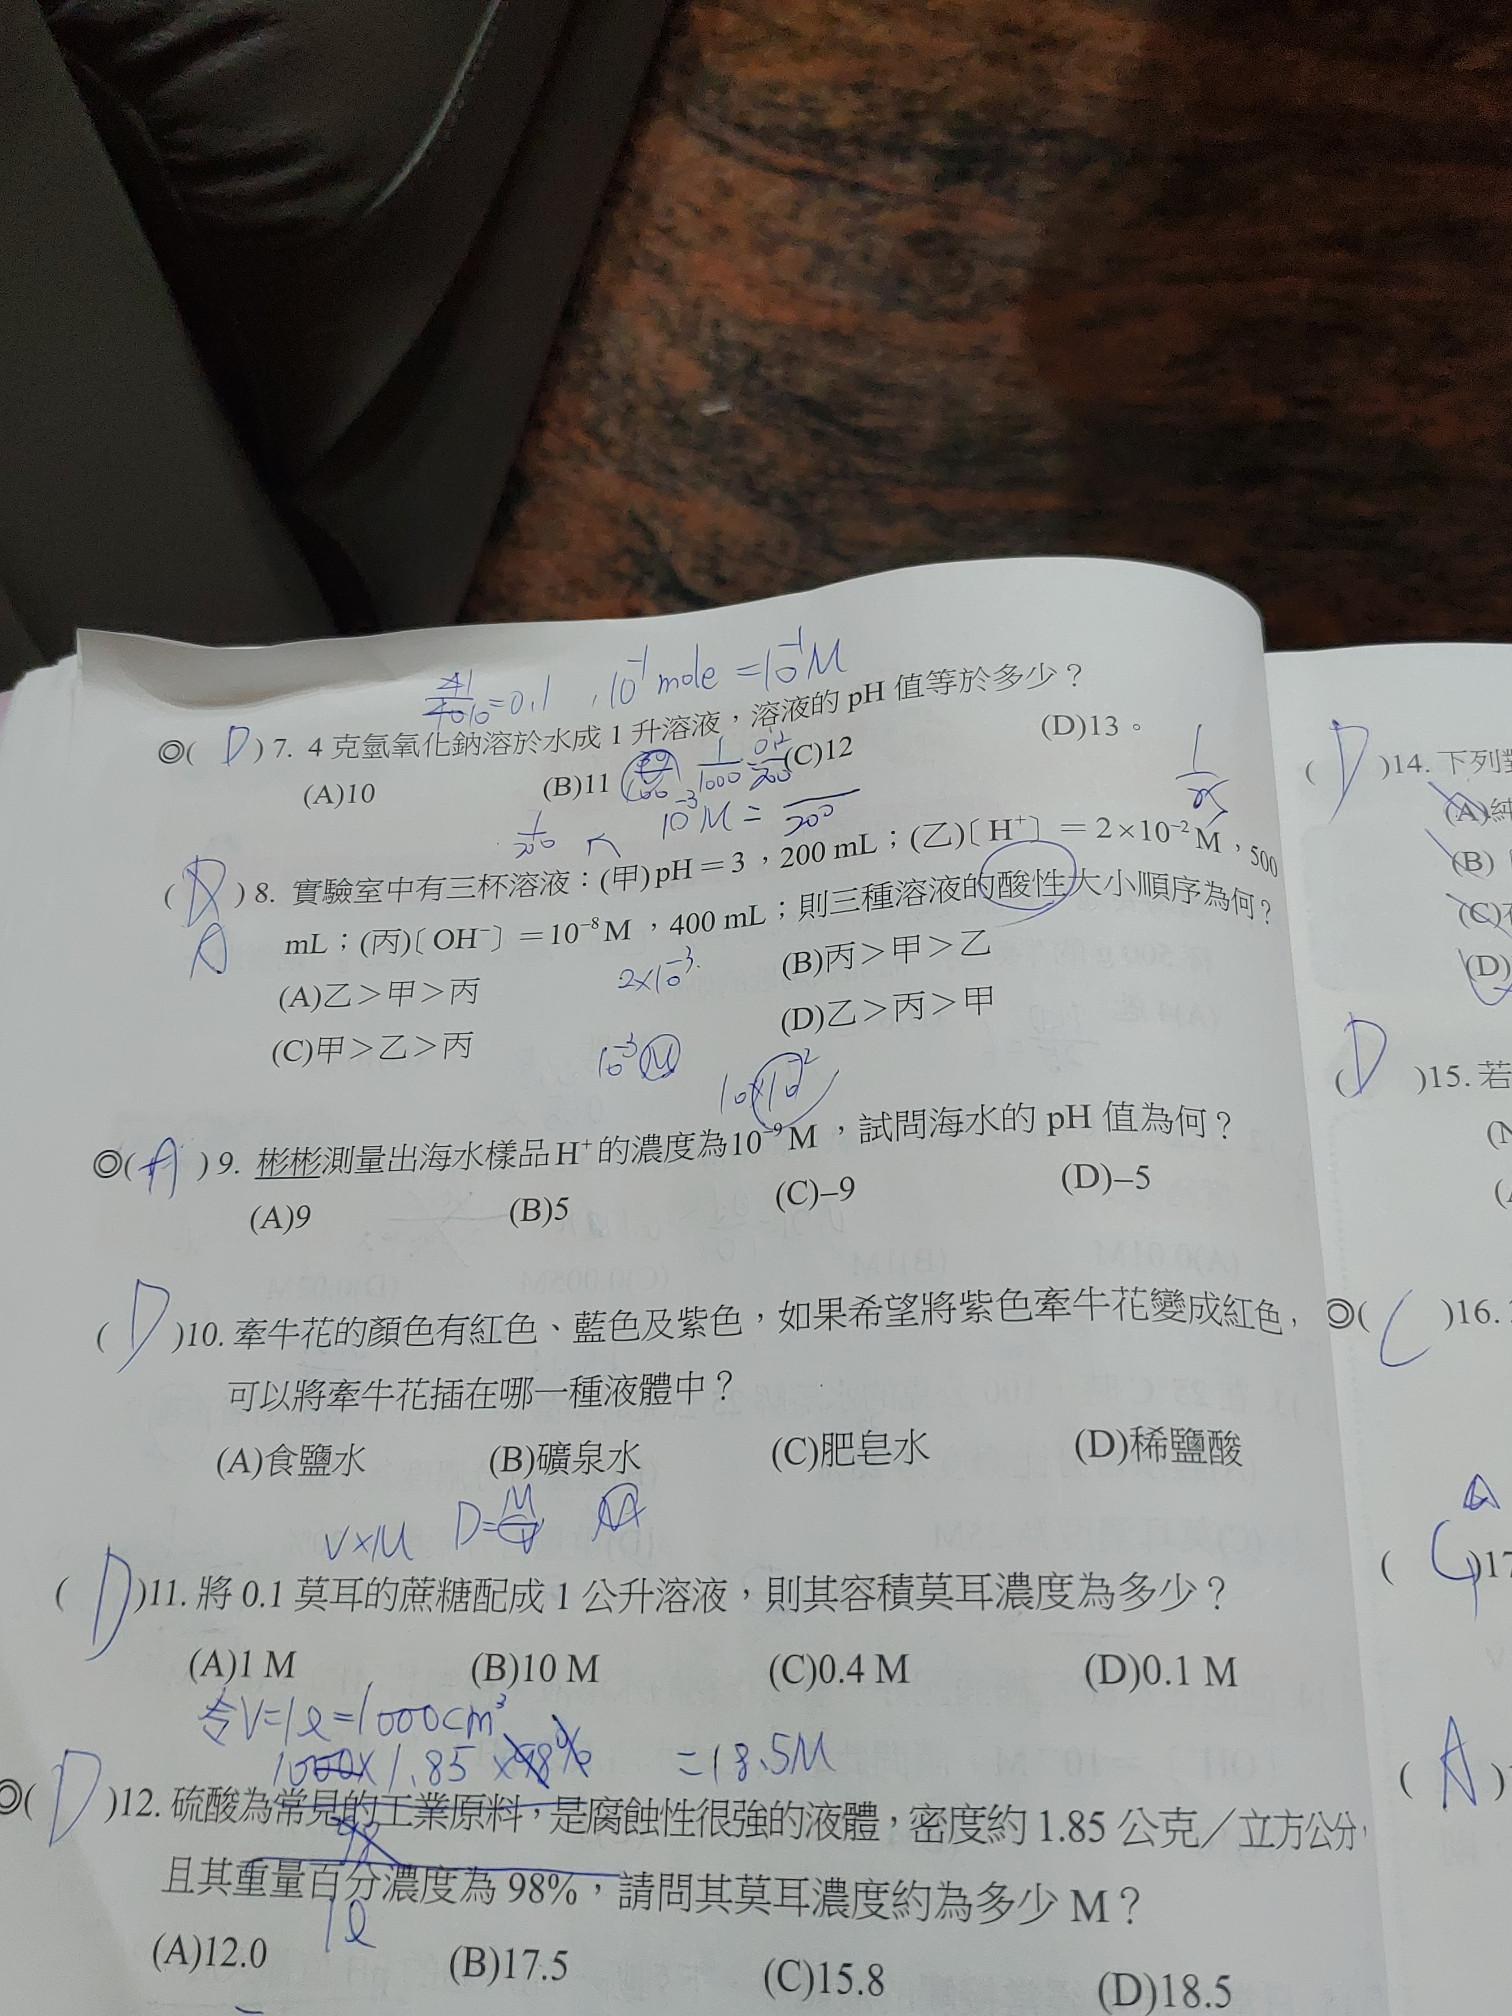 4/40=0.1 , 10⁻¹ mole = 10⁻¹ M
◎( D ) 7. 4 克氫氧化鈉溶於水成 1 升溶液，溶液的 pH 值等於多少？
(A)10 (B)11 (C)12 (D)13。
10⁻³M =
( D ) 8. 實驗室中有三杯溶液：(甲) pH＝3，200 mL；(乙)〔H⁺〕＝2×10⁻² M，500
A
mL；(丙)〔OH⁻〕＝10⁻⁸ M，400 mL；則三種溶液的酸性大小順序為何？
(A)乙＞甲＞丙 (B)丙＞甲＞乙
2×10⁻³
(C)甲＞乙＞丙 (D)乙＞丙＞甲
10⁻³ M
10×10⁻²
◎( A ) 9. 彬彬測量出海水樣品 H⁺ 的濃度為 10⁻⁹ M，試問海水的 pH 值為何？
(A)9 (B)5 (C)–9 (D)–5
( D )10. 牽牛花的顏色有紅色、藍色及紫色，如果希望將紫色牽牛花變成紅色，
可以將牽牛花插在哪一種液體中？
(A)食鹽水 (B)礦泉水 (C)肥皂水 (D)稀鹽酸
V×M D=M/V M
( D )11. 將 0.1 莫耳的蔗糖配成 1 公升溶液，則其容積莫耳濃度為多少？
(A)1 M (B)10 M (C)0.4 M (D)0.1 M
令V=1ℓ=1000cm³
1000×1.85×98% =18.5M
98
1ℓ
◎( D )12. 硫酸為常見的工業原料，是腐蝕性很強的液體，密度約 1.85 公克／立方公分，
且其重量百分濃度為 98%，請問其莫耳濃度約為多少 M？
(A)12.0 (B)17.5 (C)15.8 (D)18.5
( D )14. 下列
(A)純
(B)
(C)
(D)
( D )15. 若
◎( C )16.
A
( C )17
( A )